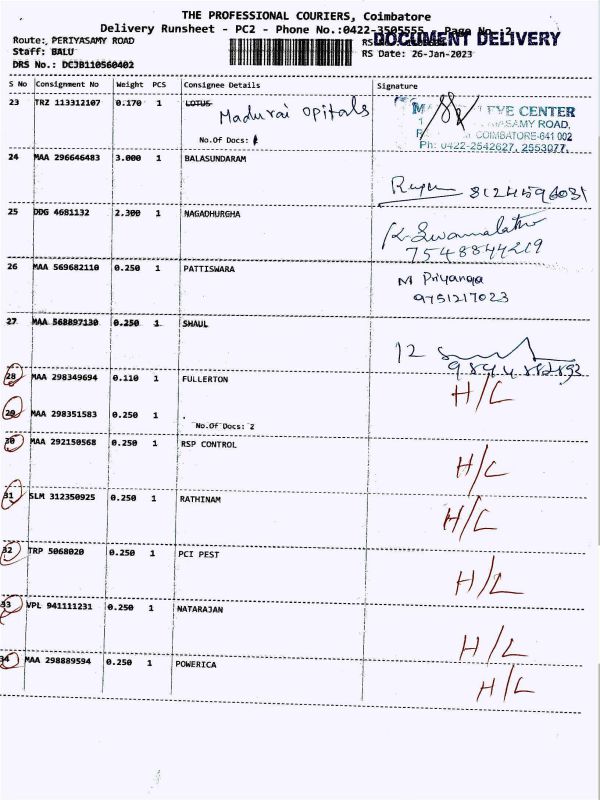 THE PROFESSIONAL COURIERS, Coimbatore
Delivery Runsheet - PC2 - Phone No.:0422-3505555 Page No.:2
DOCUMENT DELIVERY
Route: PERIYASAMY ROAD
Staff: BALU RS Date: 26-Jan-2023
DRS No.: DCJB110560402
S No Consignment No Weight PCS Consignee Details Signature
23 TRZ 113312107 0.170 1 LOTUS
Madurai opitals
No.Of Docs:
EYE CENTER
ASAMY ROAD,
COIMBATORE-641 002
Ph: 0422-2542627, 2553077.
24 MAA 296646483 3.000 1 BALASUNDARAM
8124596031
25 DDG 4681132 2.300 1 NAGADHURGHA
7548844219
26 MAA 569682110 0.250 1 PATTISWARA
M Priyanga
9751217023
27 MAA 568897130 0.250 1 SHAUL
12
28 MAA 298349694 0.110 1 FULLERTON
H/L
29 MAA 298351583 0.250 1 .
No.Of Docs: 2
30 MAA 292150568 0.250 1 RSP CONTROL
H/L
31 SLM 312350925 0.250 1 RATHINAM
H/L
32 TRP 5068020 0.250 1 PCI PEST
H/L
33 VPL 941111231 0.250 1 NATARAJAN
H/L
34 MAA 298889594 0.250 1 POWERICA
H/L